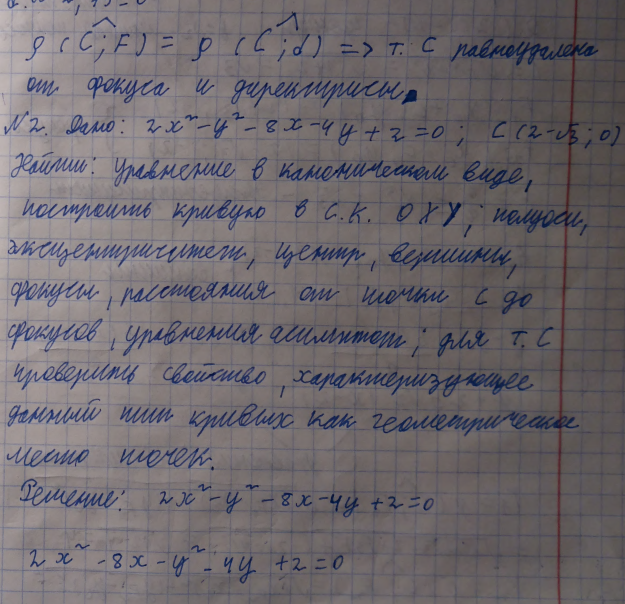 ρ (C; F) = ρ (C; d) => т. C равноудалена
от фокуса и директрисы.
№2. Дано: 2x² - y² - 8x - 4y + 2 = 0; C (2 - √3; 0)
Найти: уравнение в каноническом виде,
построить кривую в С.К. OXY; полуоси,
эксцентриситет, центр, вершины,
фокусы, расстояния от точки C до
фокусов, уравнения асимптот; для т. C
проверить свойство, характеризующее
данный тип кривых как геометрическое
место точек.
Решение: 2x² - y² - 8x - 4y + 2 = 0
2x² - 8x - y² - 4y + 2 = 0